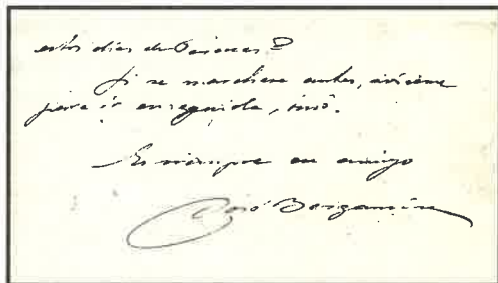 estos días de Pascuas?
Si se marchase antes, avíseme
para ir en seguida, sinó.
Es siempre su amigo
José Bergamín